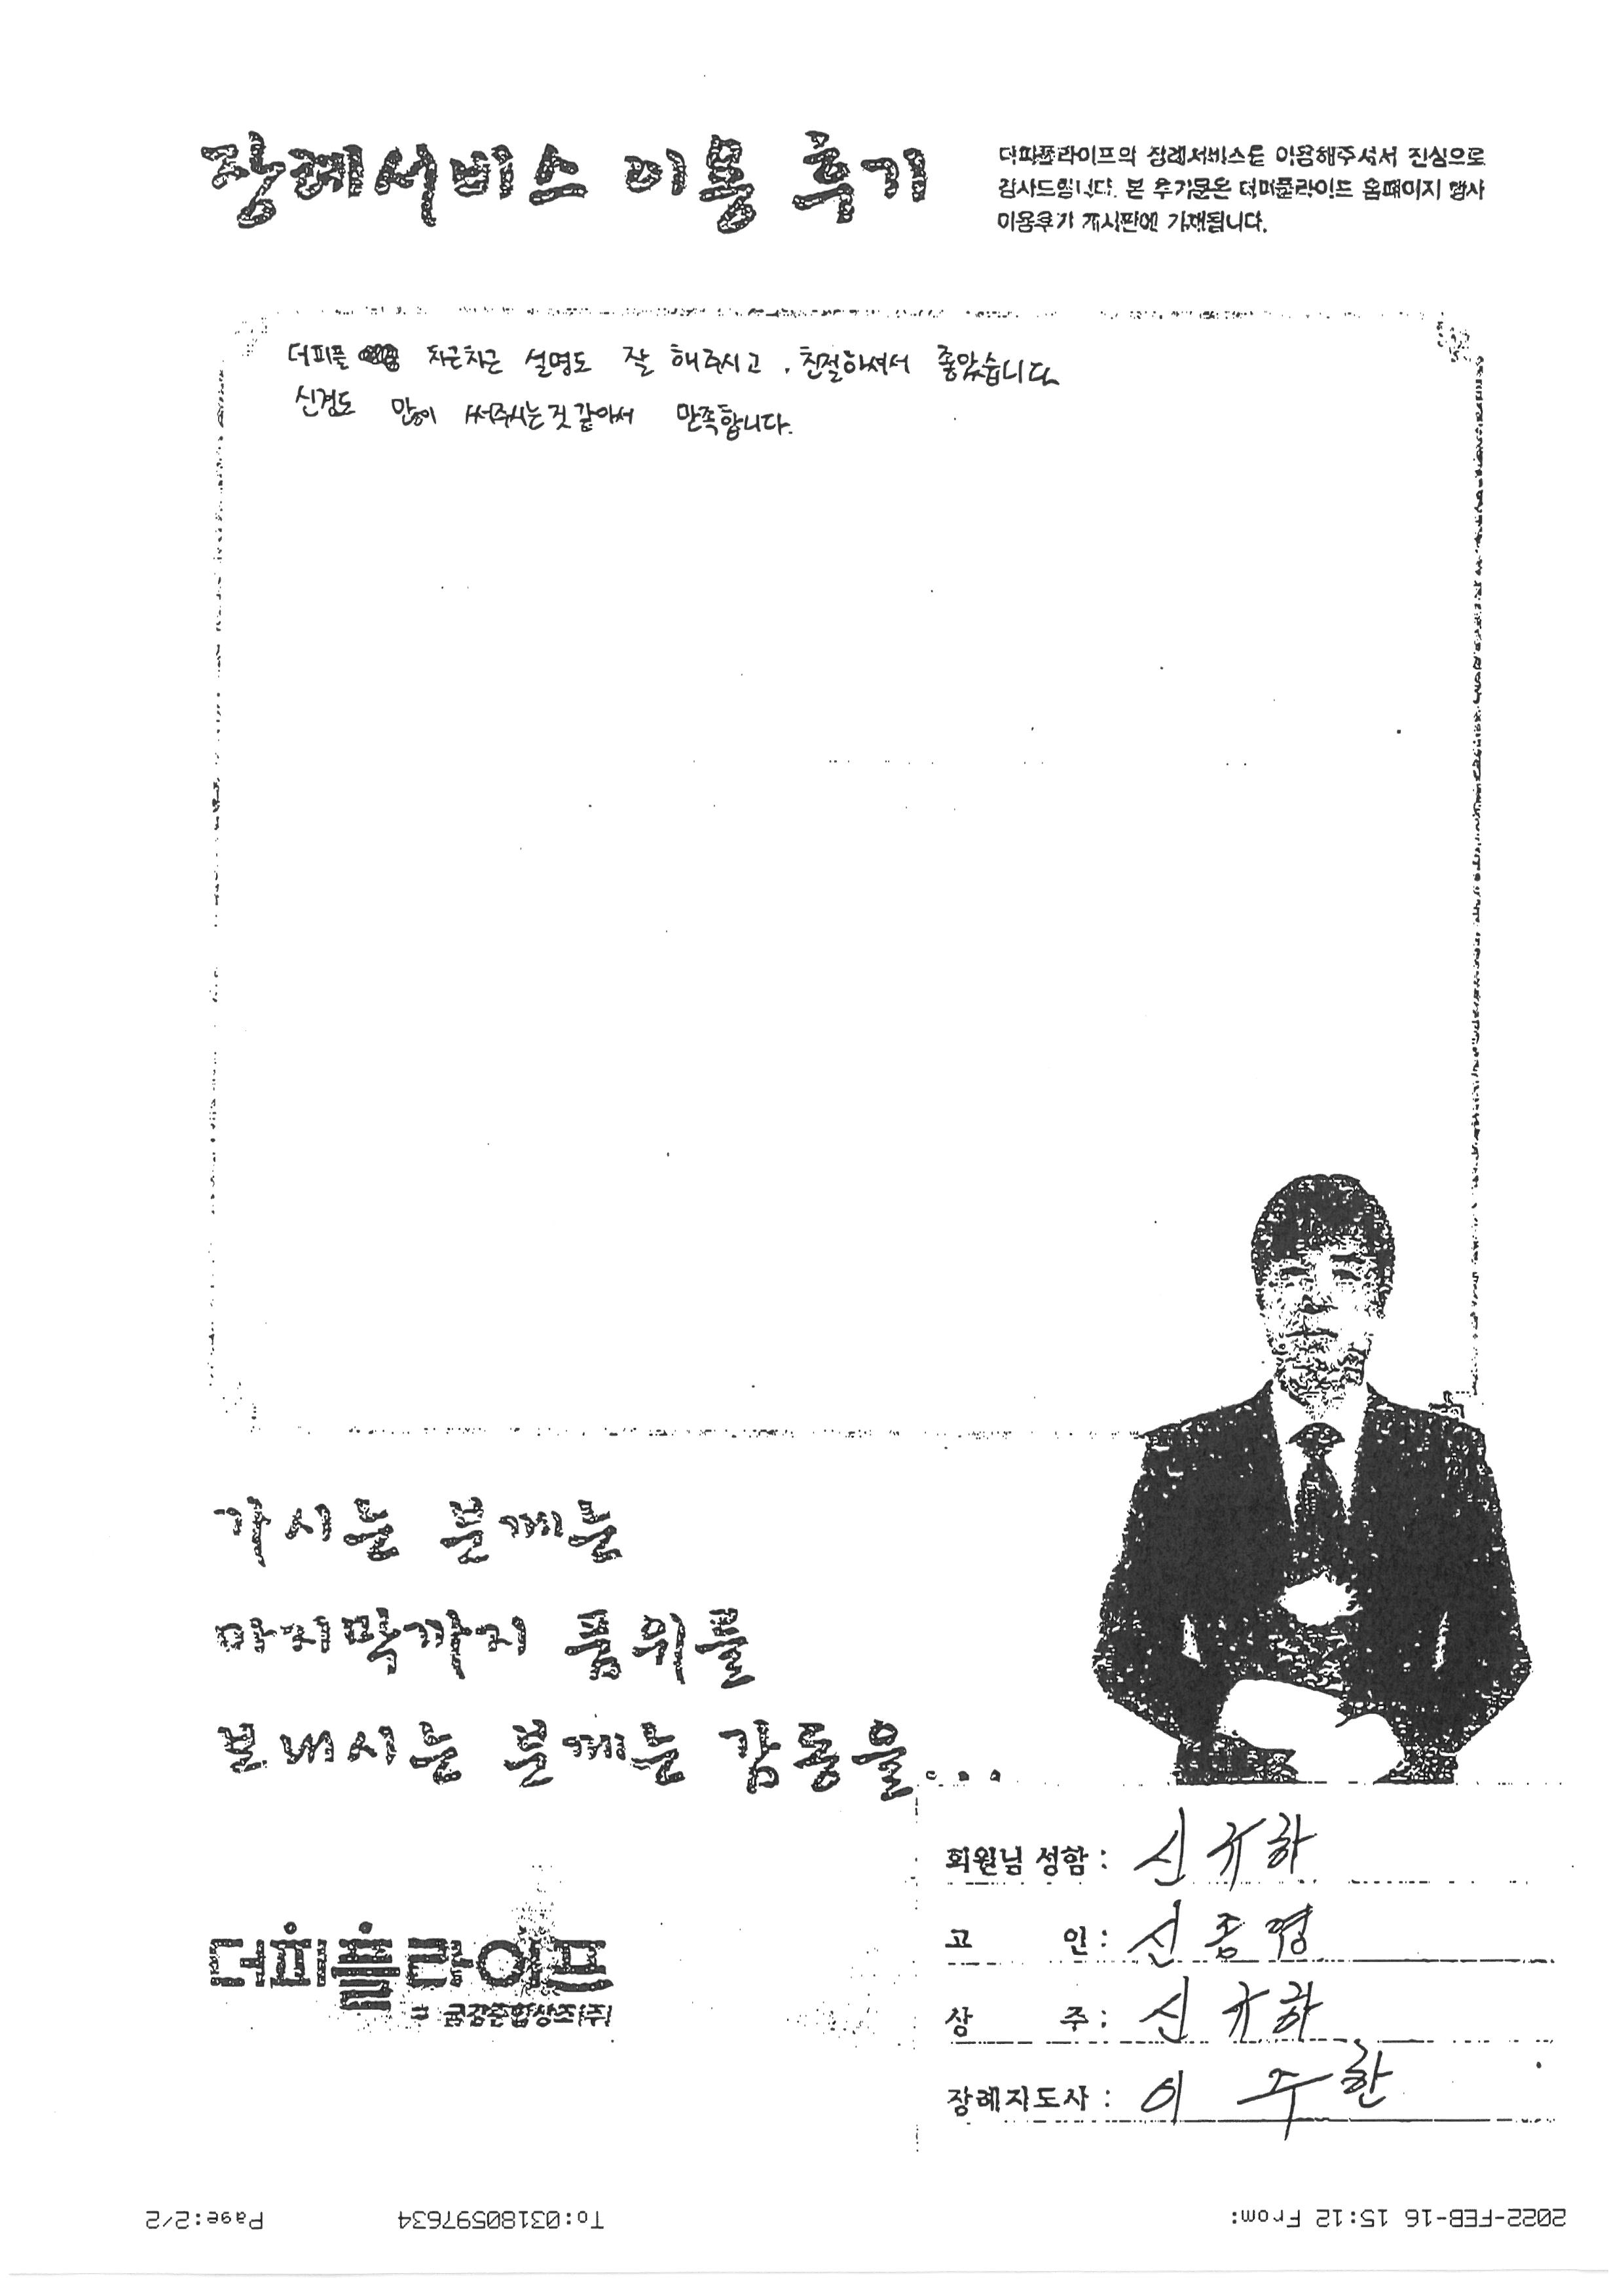 장례서비스 이용 후기
더피플라이프의 장례서비스를 이용해주셔서 진심으로
감사드립니다. 본 후기문은 더피플라이프 홈페이지 행사
이용후기 게시판에 기재됩니다.
더피플 차근차근 설명도 잘 해주시고, 친절하셔서 좋았습니다
신경도 많이 써주시는것같아서 만족합니다.
가시는 분께는
마지막까지 품위를
보내시는 분께는 감동을...
회원님 성함 : 신규하
고 인 : 신종령
상 주 : 신규하
장례지도사 : 이주한
더피플라이프
금강종합상조(주)
2022-FEB-16 15:12 From: To:03180597634 Page:2/2